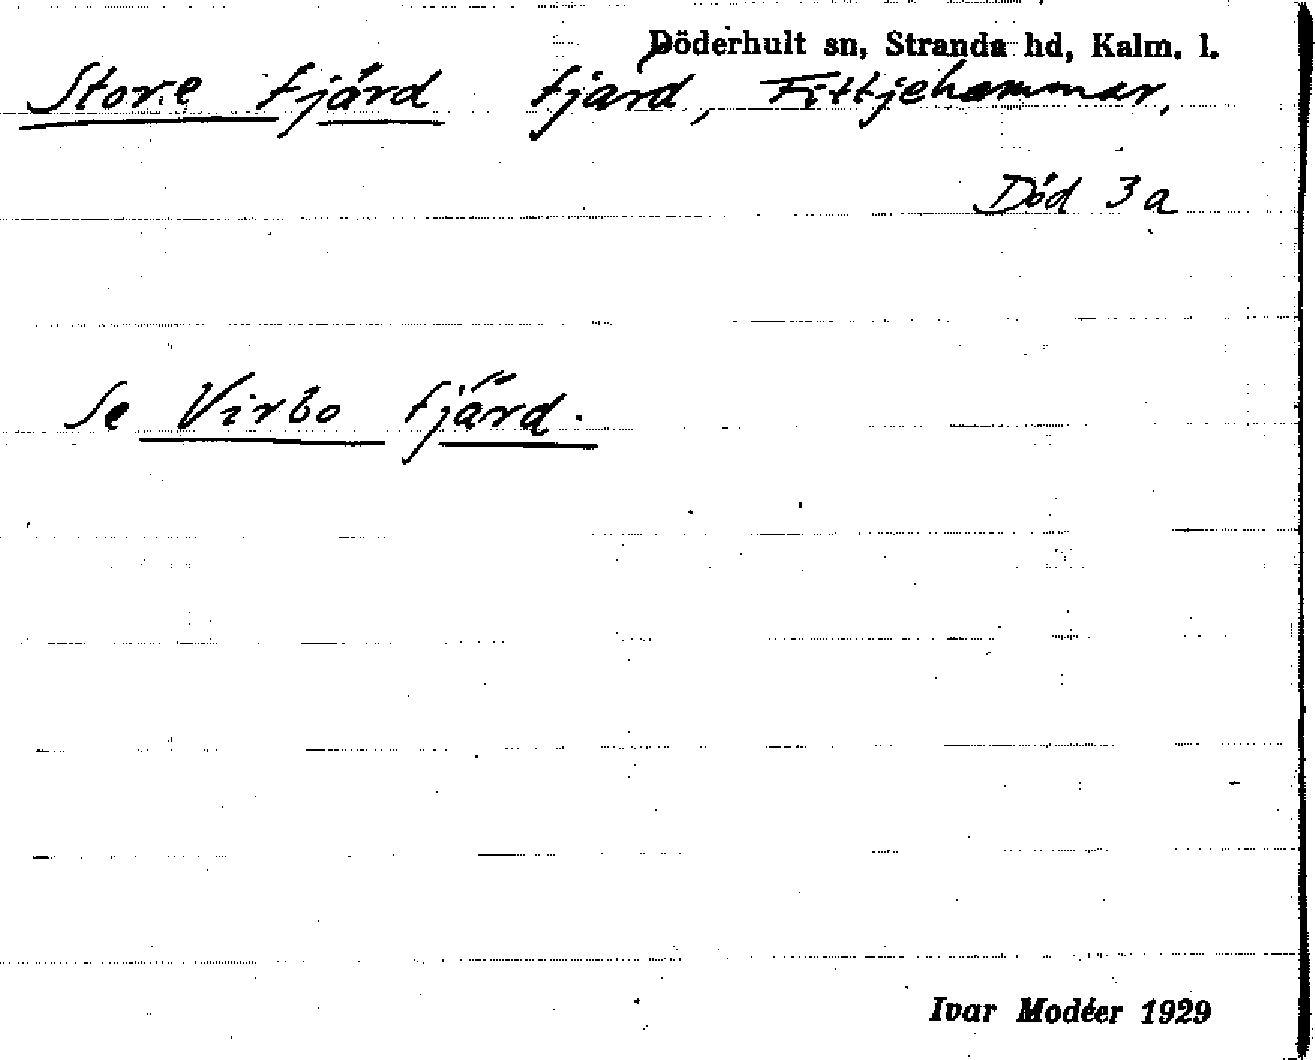 Döderhult sn, Stranda hd, Kalm. l.
Store fjärd fjärd, Fittjehammar,
Död 3a
Se Virbo fjärd.
Ivar Modéer 1929